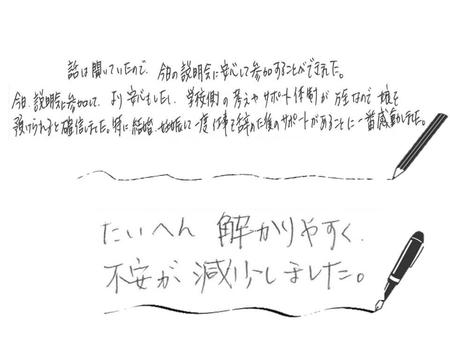 話は聞いていたので、今日の説明会に安心して参加することができました。
今日、説明会に参加して、より安心しましたし、学校側の考えやサポート体制が万全なので娘を
預けられると確信しました。特に結婚、妊娠して一度仕事を辞めた後のサポートがあることに一番感動しました。
たいへん 解かりやすく、
不安が 減少しました。